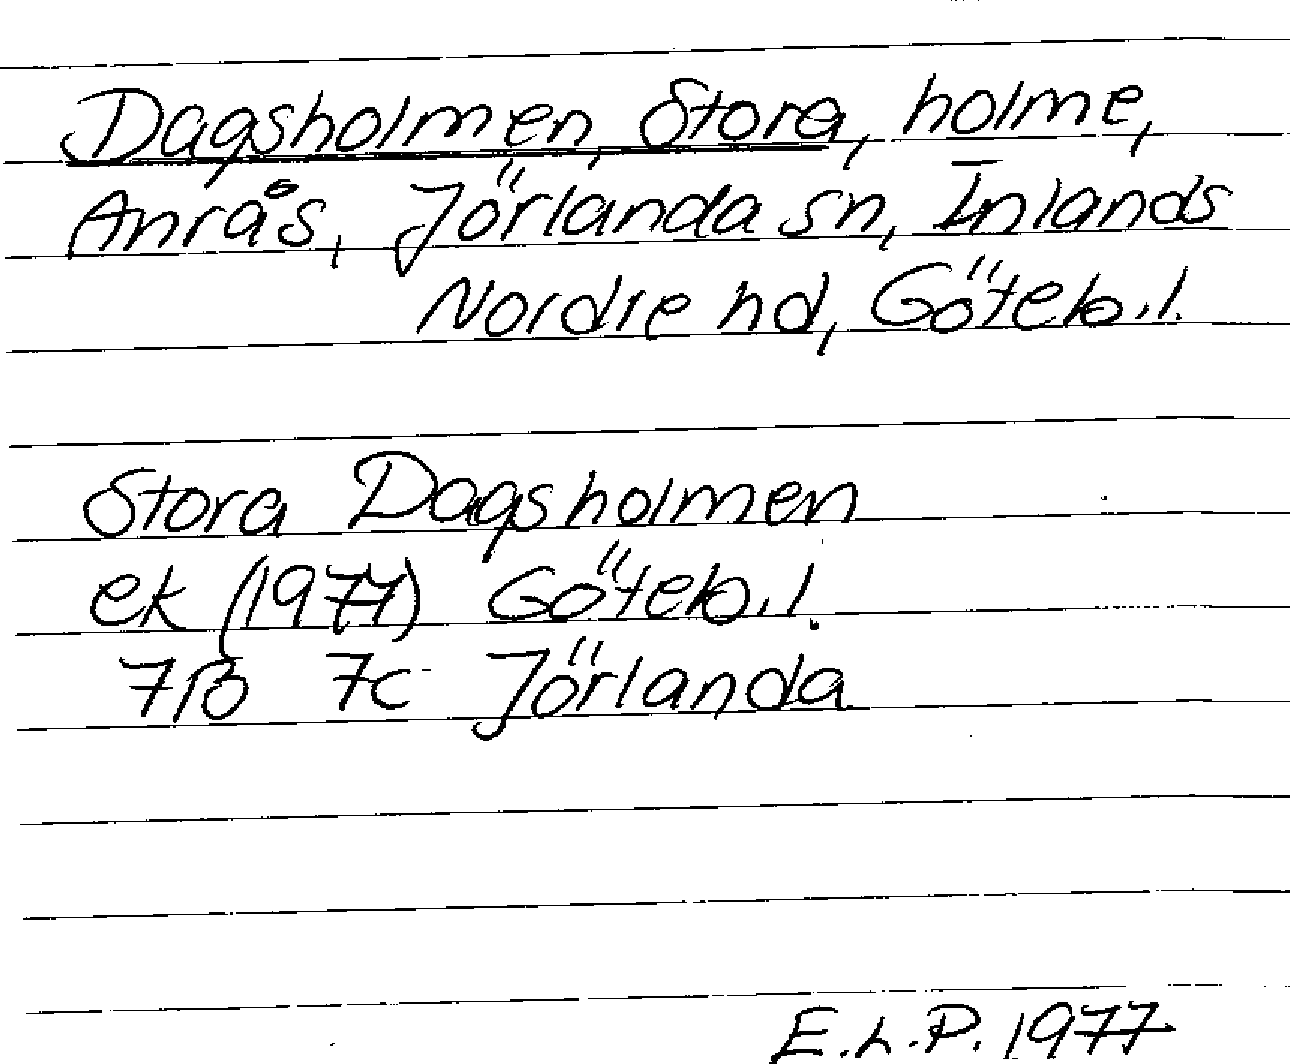 Dagsholmen, Stora, holme,
Anrås, Jörlanda sn, Inlands
Nordre hd, Göteb.l.
Stora Dagsholmen
ek (1977) Göteb.l.
7B 7c Jörlanda
E.L.P. 1977